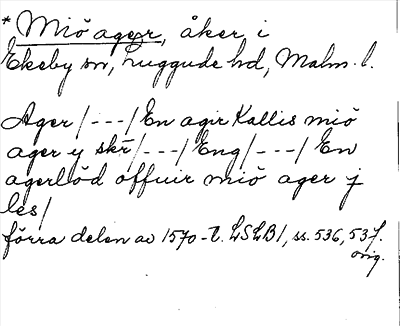 * Miö ager, åker i
Ekeby sn, Luggude hd, Malm. l.
Ager/---/En agir Kallis miö
ager y skr̄/---/Eng/---/En
agerbod offuir miö ager j
les/
förra delen av 1570-t. LSLB1, ss. 536, 537.
orig.